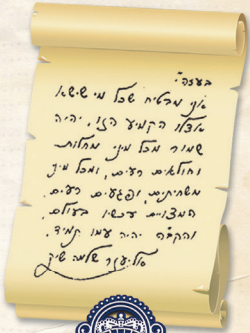 בעזה"י
אני מבטיח שכל מי שישא
אצלו הקמיע הזו, יהיה
שמור מכל מיני מחלות
וחולאים רעים, ומכל מין
משחיתים, ופגעים רעים,
המצויים עכשיו בעולם.
והקב"ה יהיה עמו תמיד.
אליעזר שלמה שיק